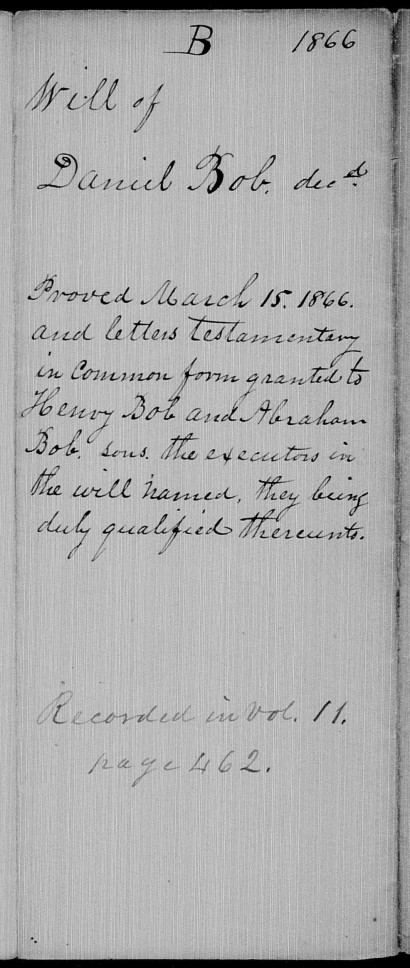 B 1866
Will of
Daniel Bob, decd.
Proved March 15. 1866.
and letters testamentary
in common form granted to
Henry Bob and Abraham
Bob, sons. the executors in
the will named, they being
duly qualified thereunto.
Recorded in Vol. 11.
page 462.